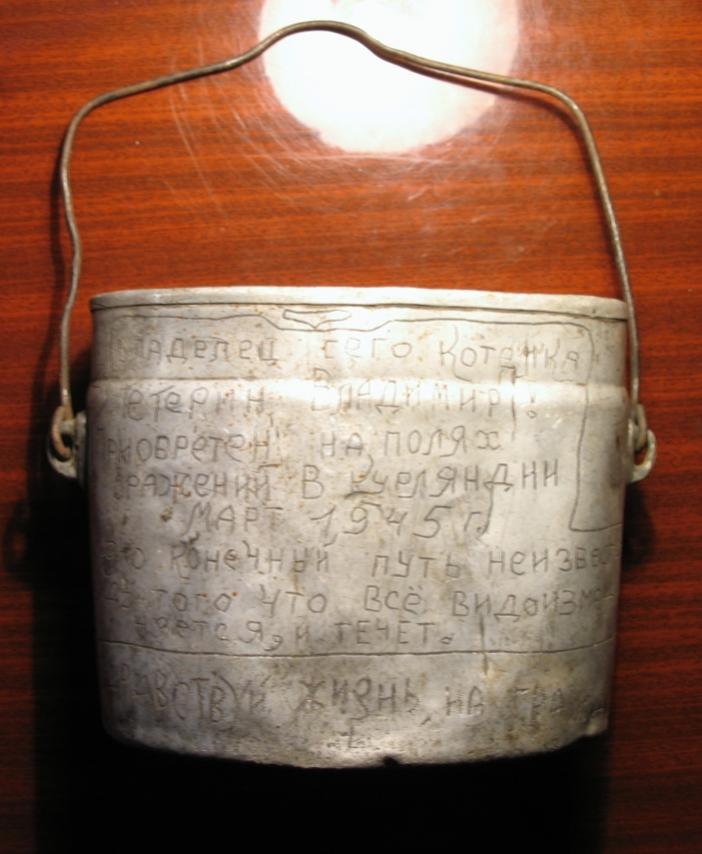 Владелец сего котелка
Петерин Владимир П.!
Приобретен на полях
сражений в Курляндии
МАРТ 1945 г.
Его конечный путь неизвес
того что всё видоизме
няется, и течет.
Здравствуй жизнь на